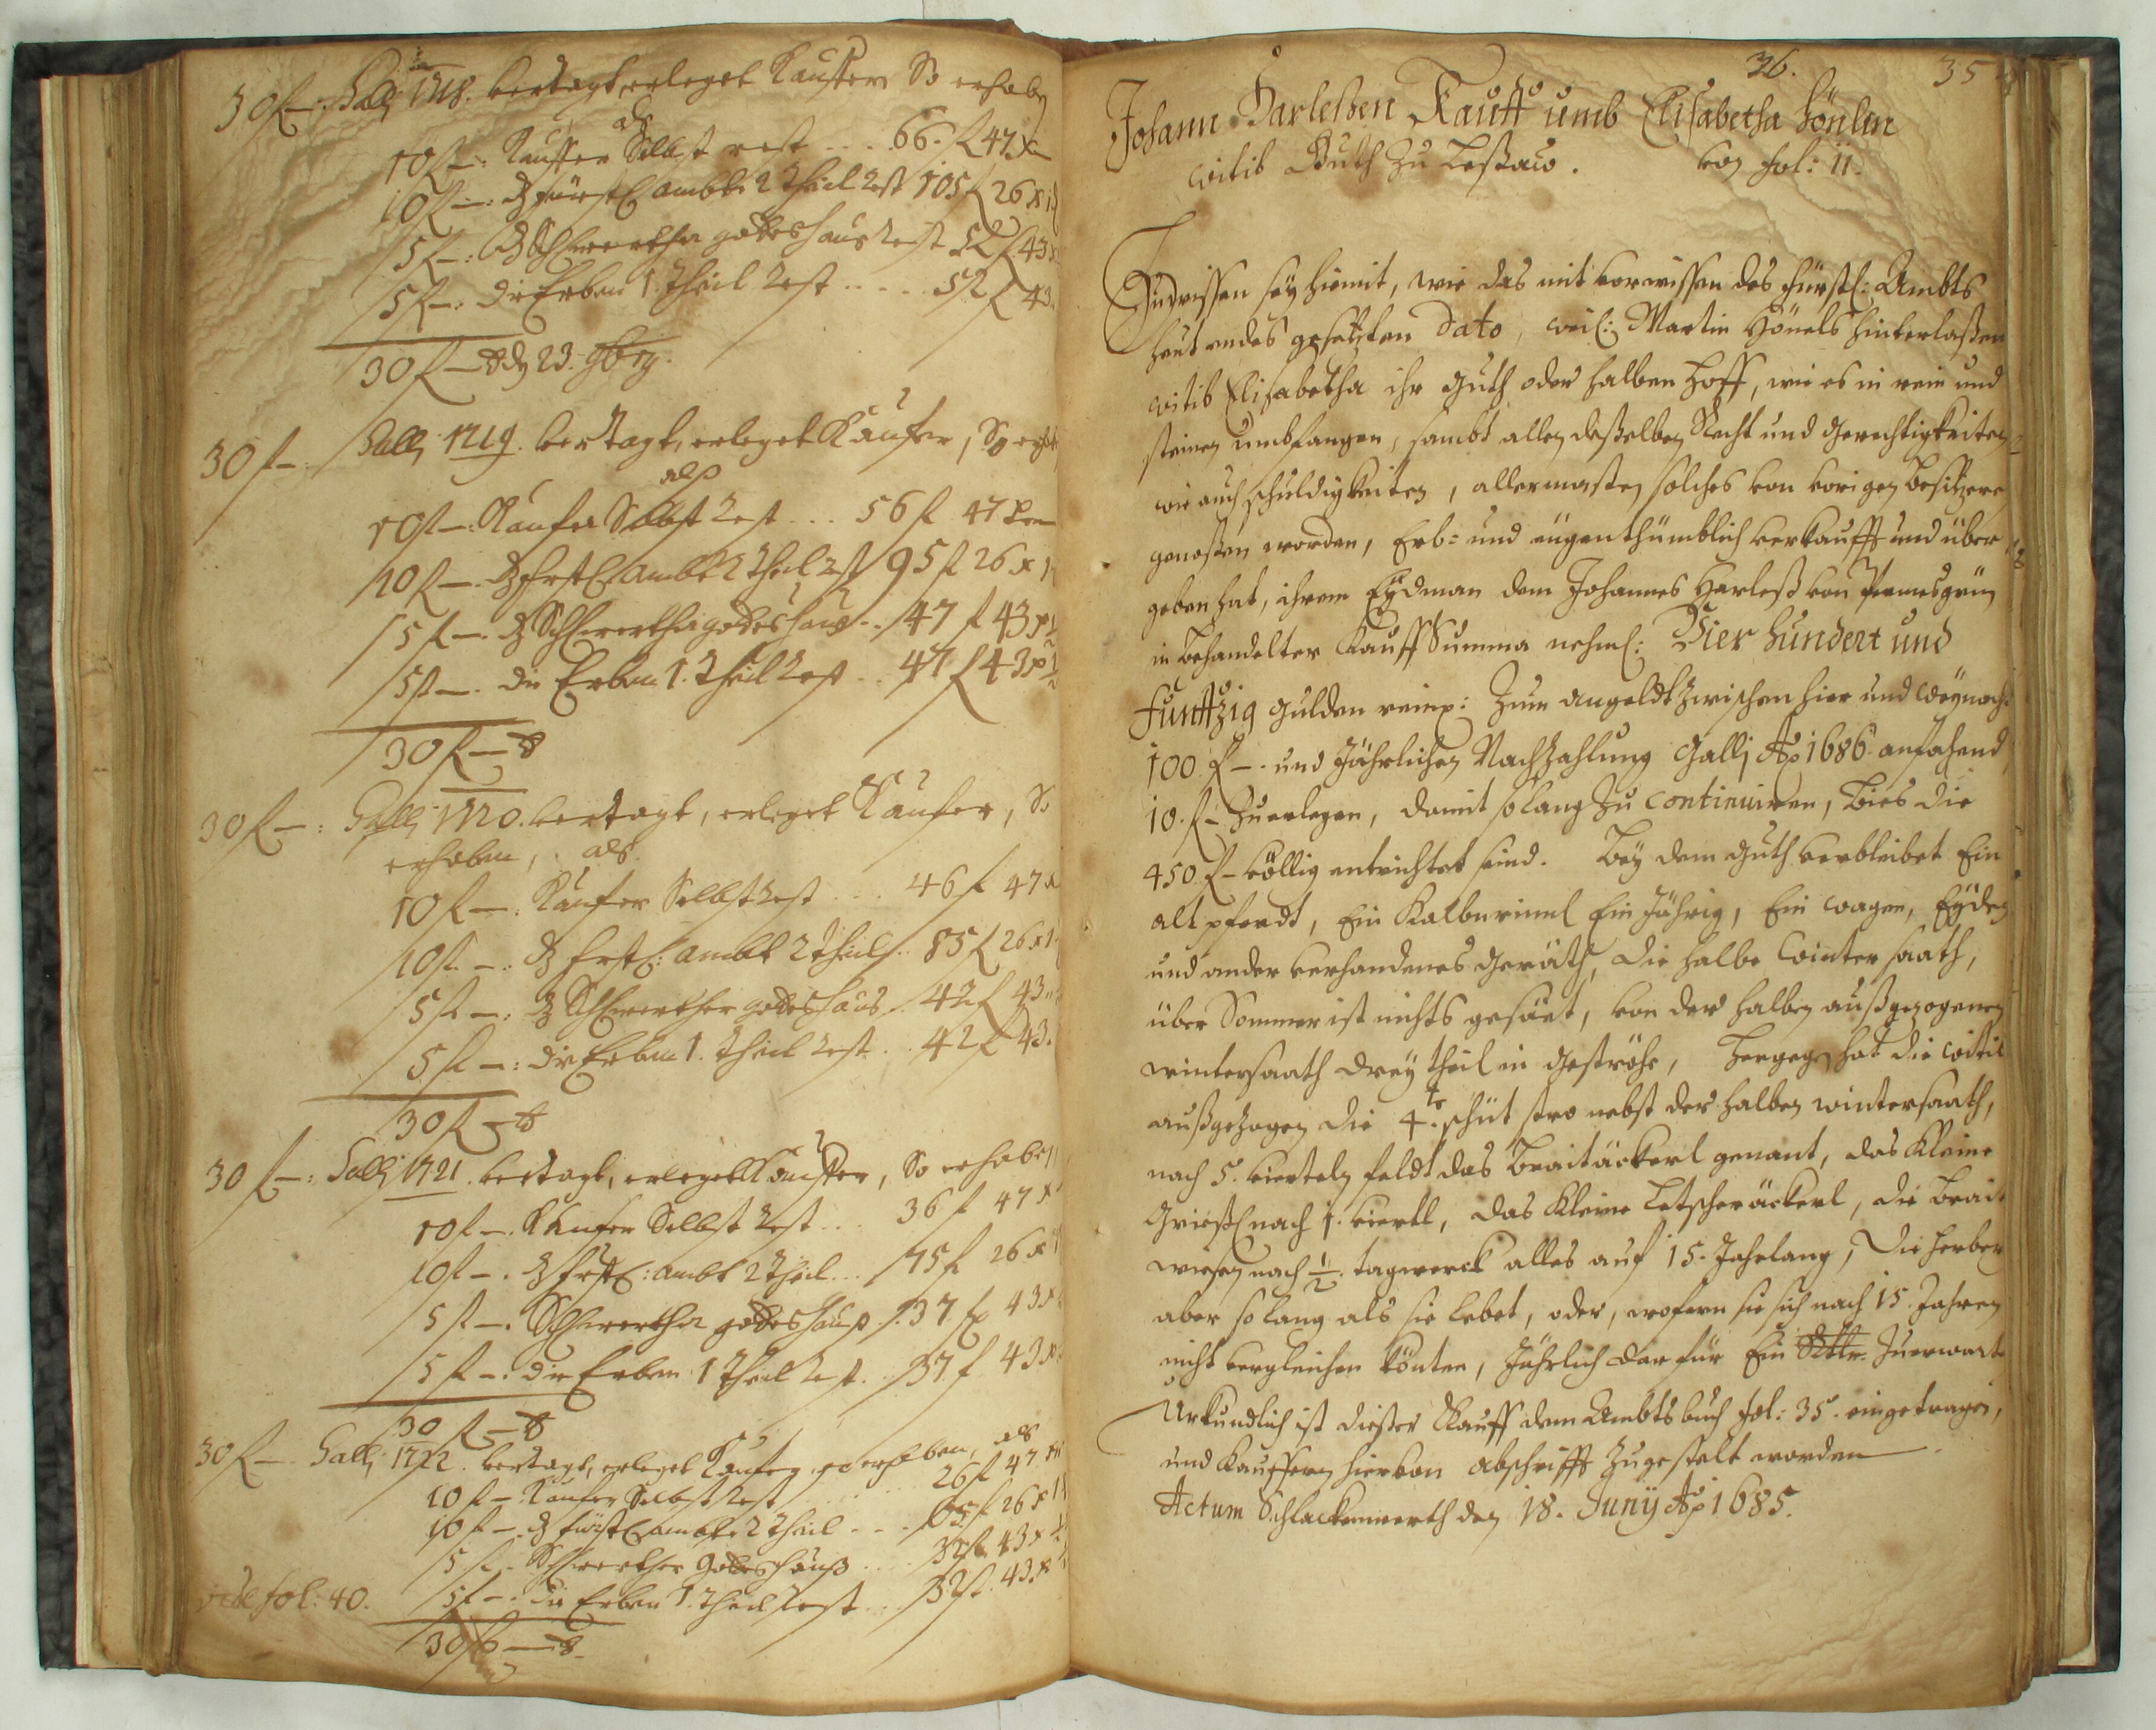 30 f —: Galli 1718. vertagt, erleget Kauffer So erhaben
als
10 f —: Kauffer Selbst rest ... 66. f 47 x
10 f —: d fürstl ambt 2 theil rest 105 f 26 x
5 f —: d Schlwerther gotteshaus rest 52 f 43 x
5 f —: die Erben 1. theil rest ..... 52 f 43.
30 f — den 23. 9bris.
30 f —: Galli 1719. vertagt, erleget Kaufer, So erhob
als
10 f —: Kaufer Selbst rest ... 56 f 47 x
10 f —. d fürstl ambt 2 theil rest 95 f 26 x
5 f —. d Schlwerther gotteshaus .. 47 f 43 x
5 f —. die Erben 1. theil rest .. 47 f 43 x
30 f —
30 f —: Galli 1720. vertagt, erleget Kaufer, So
erhaben, als
10 f —: Kaufer Selbst rest ... 46 f 47 x
10 f —: d frstl: ambt 2 theil .. 85 f 26 x
5 f —: d Schlwerther gotteshaus .. 42 f 43
5 f —: die Erben 1. theil rest .. 42 f 43.
30 f —
30 f —: Galli 1721. vertagt, erleget Kauffer, So erhaben
10 f —. Kaufer Selbst rest ... 36 f 47 x
10 f —. d frstl: ambt 2 theil ... 75 f 26 x
5 f —. Schlwerther gotteshaus .. 37 f 43 x
5 f —. die Erben 1 theil rest .. 37 f 43 x
30 f —
30 f —. Galli 1722. vertagt, erleget Kaufer, so erhoben, als
10 f —. Kaufer Selbst rest ..... 26 f 47
10 f —. d fürstl ambt 2 theil ... 65 f 26 x
5 f —. Schlwerther Gotteshaus .... 32 f 43 x
vide fol: 40. 5 f —. die Erben 1. theil rest ... 32 f. 43 x
30 f —
36. 35
Johann Harleßen Kauff umb Elisabetha Hönlin
witib Guth zu Leßaw. von fol: 11.
Zuwissen sey hiemit, wie das mit vorwissen des Fürstl: Ambts
heut endes gesetzten dato, weil: Martin Hönels hinterlaßen
witib Elisabetha ihr Guth oder halben Hoff, wie es in rein und
steinen umbfangen, sambt allen deßelben Recht und Gerechtigkeiten
wie auch schuldigkeiten, allermasten solches von vorigen besitzern
genoßen worden, Erb= und eügenthümblich verkaufft und über
geben hat, ihrem Eydman dem Johannes Harleß von Permesgrün
in behandelter Kauff Summa nehml: Vier hundert und
Funffzig Gulden reinl: Zum angeldt zwischen hier und Weynach:
100 f —. und Jährlichen Nachzahlung Galli Ao 1686 anfahend
10. f — zuerlegen, damit solang zu continuiren, bies die
450 f — völlig entrichtet sind. Bey dem Guth verbleibet Ein
alt pferdt, Ein Kalben Ein Jährig, Ein wagen, Eyden
und ander verhandenes Geräth, die halbe Winter saath,
über Sommer ist nichts gesäet, von der halben außgezogenen
wintersaath drey theil in Geströhe, Hergegen hat die Witib
außgezogen die 4te schüt stro nebst der halben wintersaath,
nach 5. vierteln feldt das Breitäckerl genant, das Kleine
Grießl nach 1. viertl, das Kleine Letscheräckerl, die Brait
wiesen nach ½. tagwerck alles auf 15. Jahrlang, Die Herberg
aber so lang als sie lebet, oder, wofern sie sich nach 15. Jahren
nicht vergleichen könten, Jährlich dar für Ein zuerwart
Urkundlich ist dießer Kauff dem Ambtsbuch fol: 35. eingetragen,
und Kauffern hiervon abschrifft Zugestelt worden
Actum Schlackenwerth den 18. Juny Ao 1685.